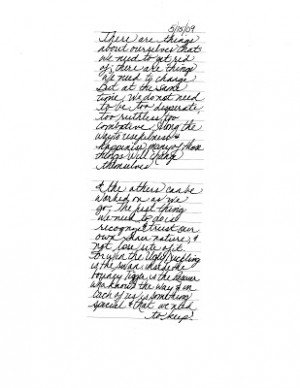 5/15/09
There are things
about ourselves that
we need to get red
of; there are things
we need to change
But at the same
time, we do not need
to be too desperate,
too ruthless, too
combative. Along the
way to usefulness &
happiness, many of those
things will change
themselves
& the others can be
worked on as we
go, the first thing
we need to do is
recognize & trust our
own inner nature, &
not lose site of it.
For within the Ugly Duckling
is the swan, inside the
Bouncy Tigger is the
who knows the way & in
each of us is something
special & that we need
to keep!